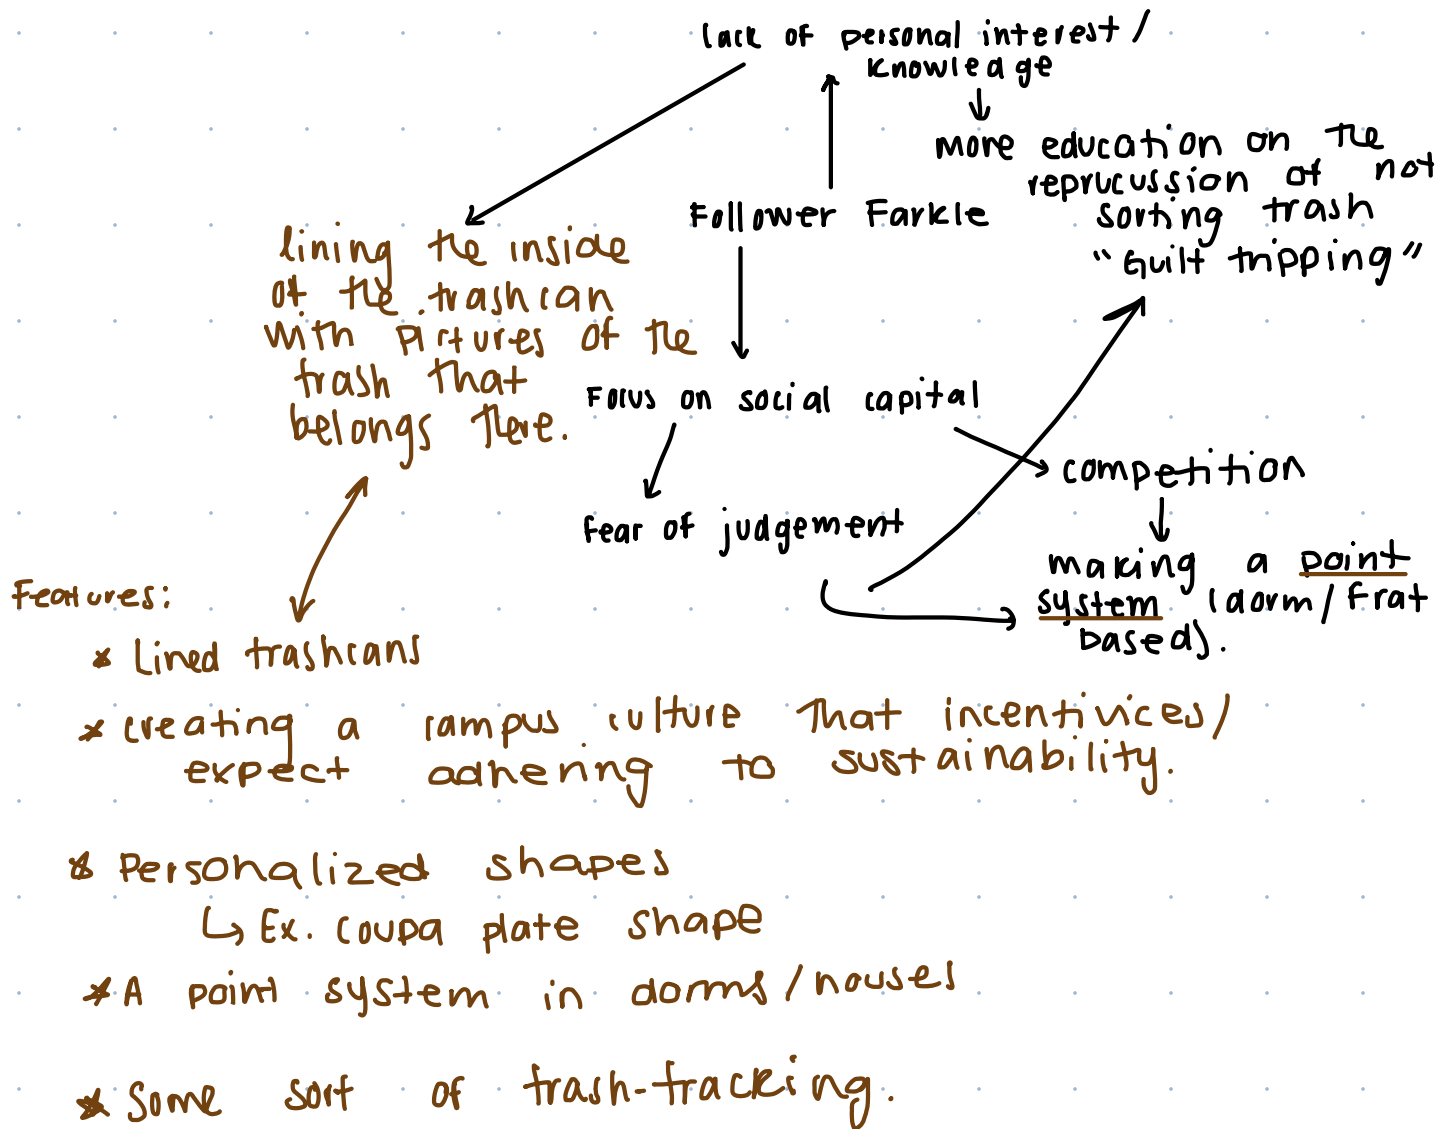 lack of personal interest/
knowledge
more education on the
reprucussion of not
sorting trash
"Guilt tripping"
Follower Farkle
lining the inside
of the trashcan
with pictures of the
trash that
belongs there.
Focus on social capital
fear of judgement
competition
making a point
system (dorm/frat
based).
Features:
* Lined trashcans
* creating a campus culture that incentivices/
expect adhering to sustainability.
* Personalized shapes
↳ Ex. coupa plate shape
* A point system in dorms/houses
* Some sort of trash-tracking.